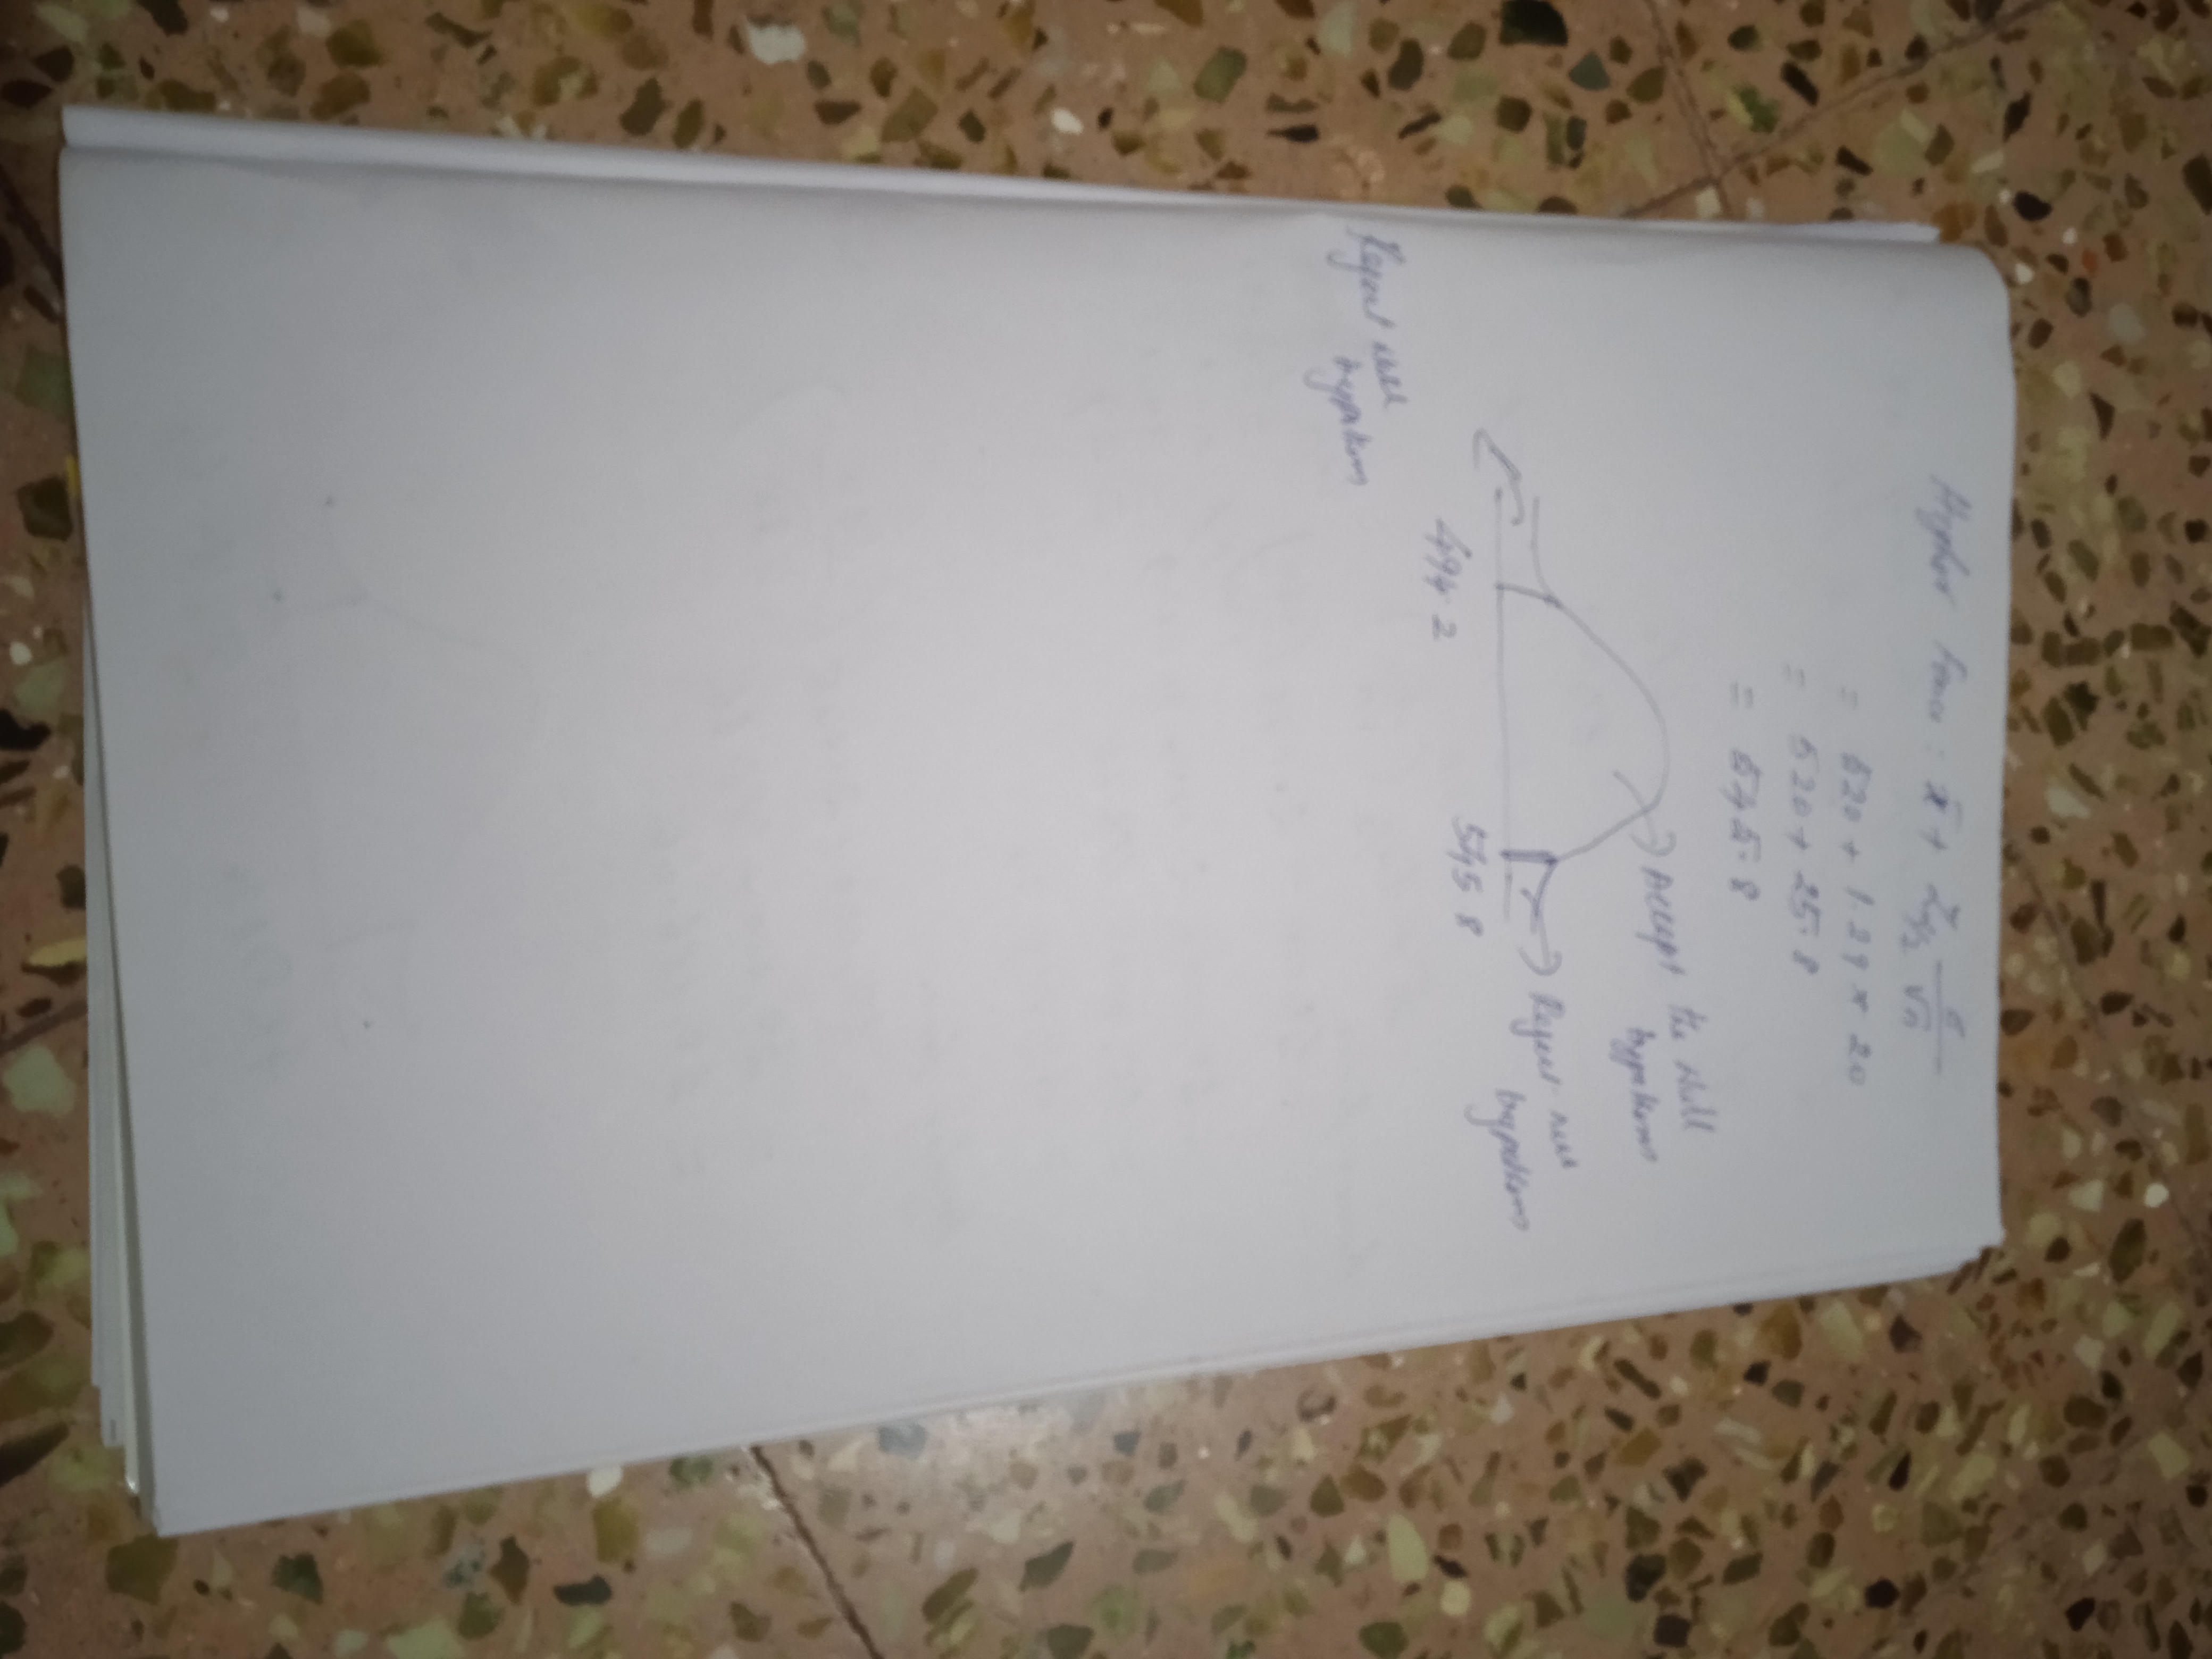 Higher Fence : x̄ + Zα/2 σ/√n
= 520 + 1.29 × 20
= 520 + 25.8
= 545.8
Accept the Null
hypothesis
Reject null
hypothesis
494.2
545.8
Reject null
hypothesis